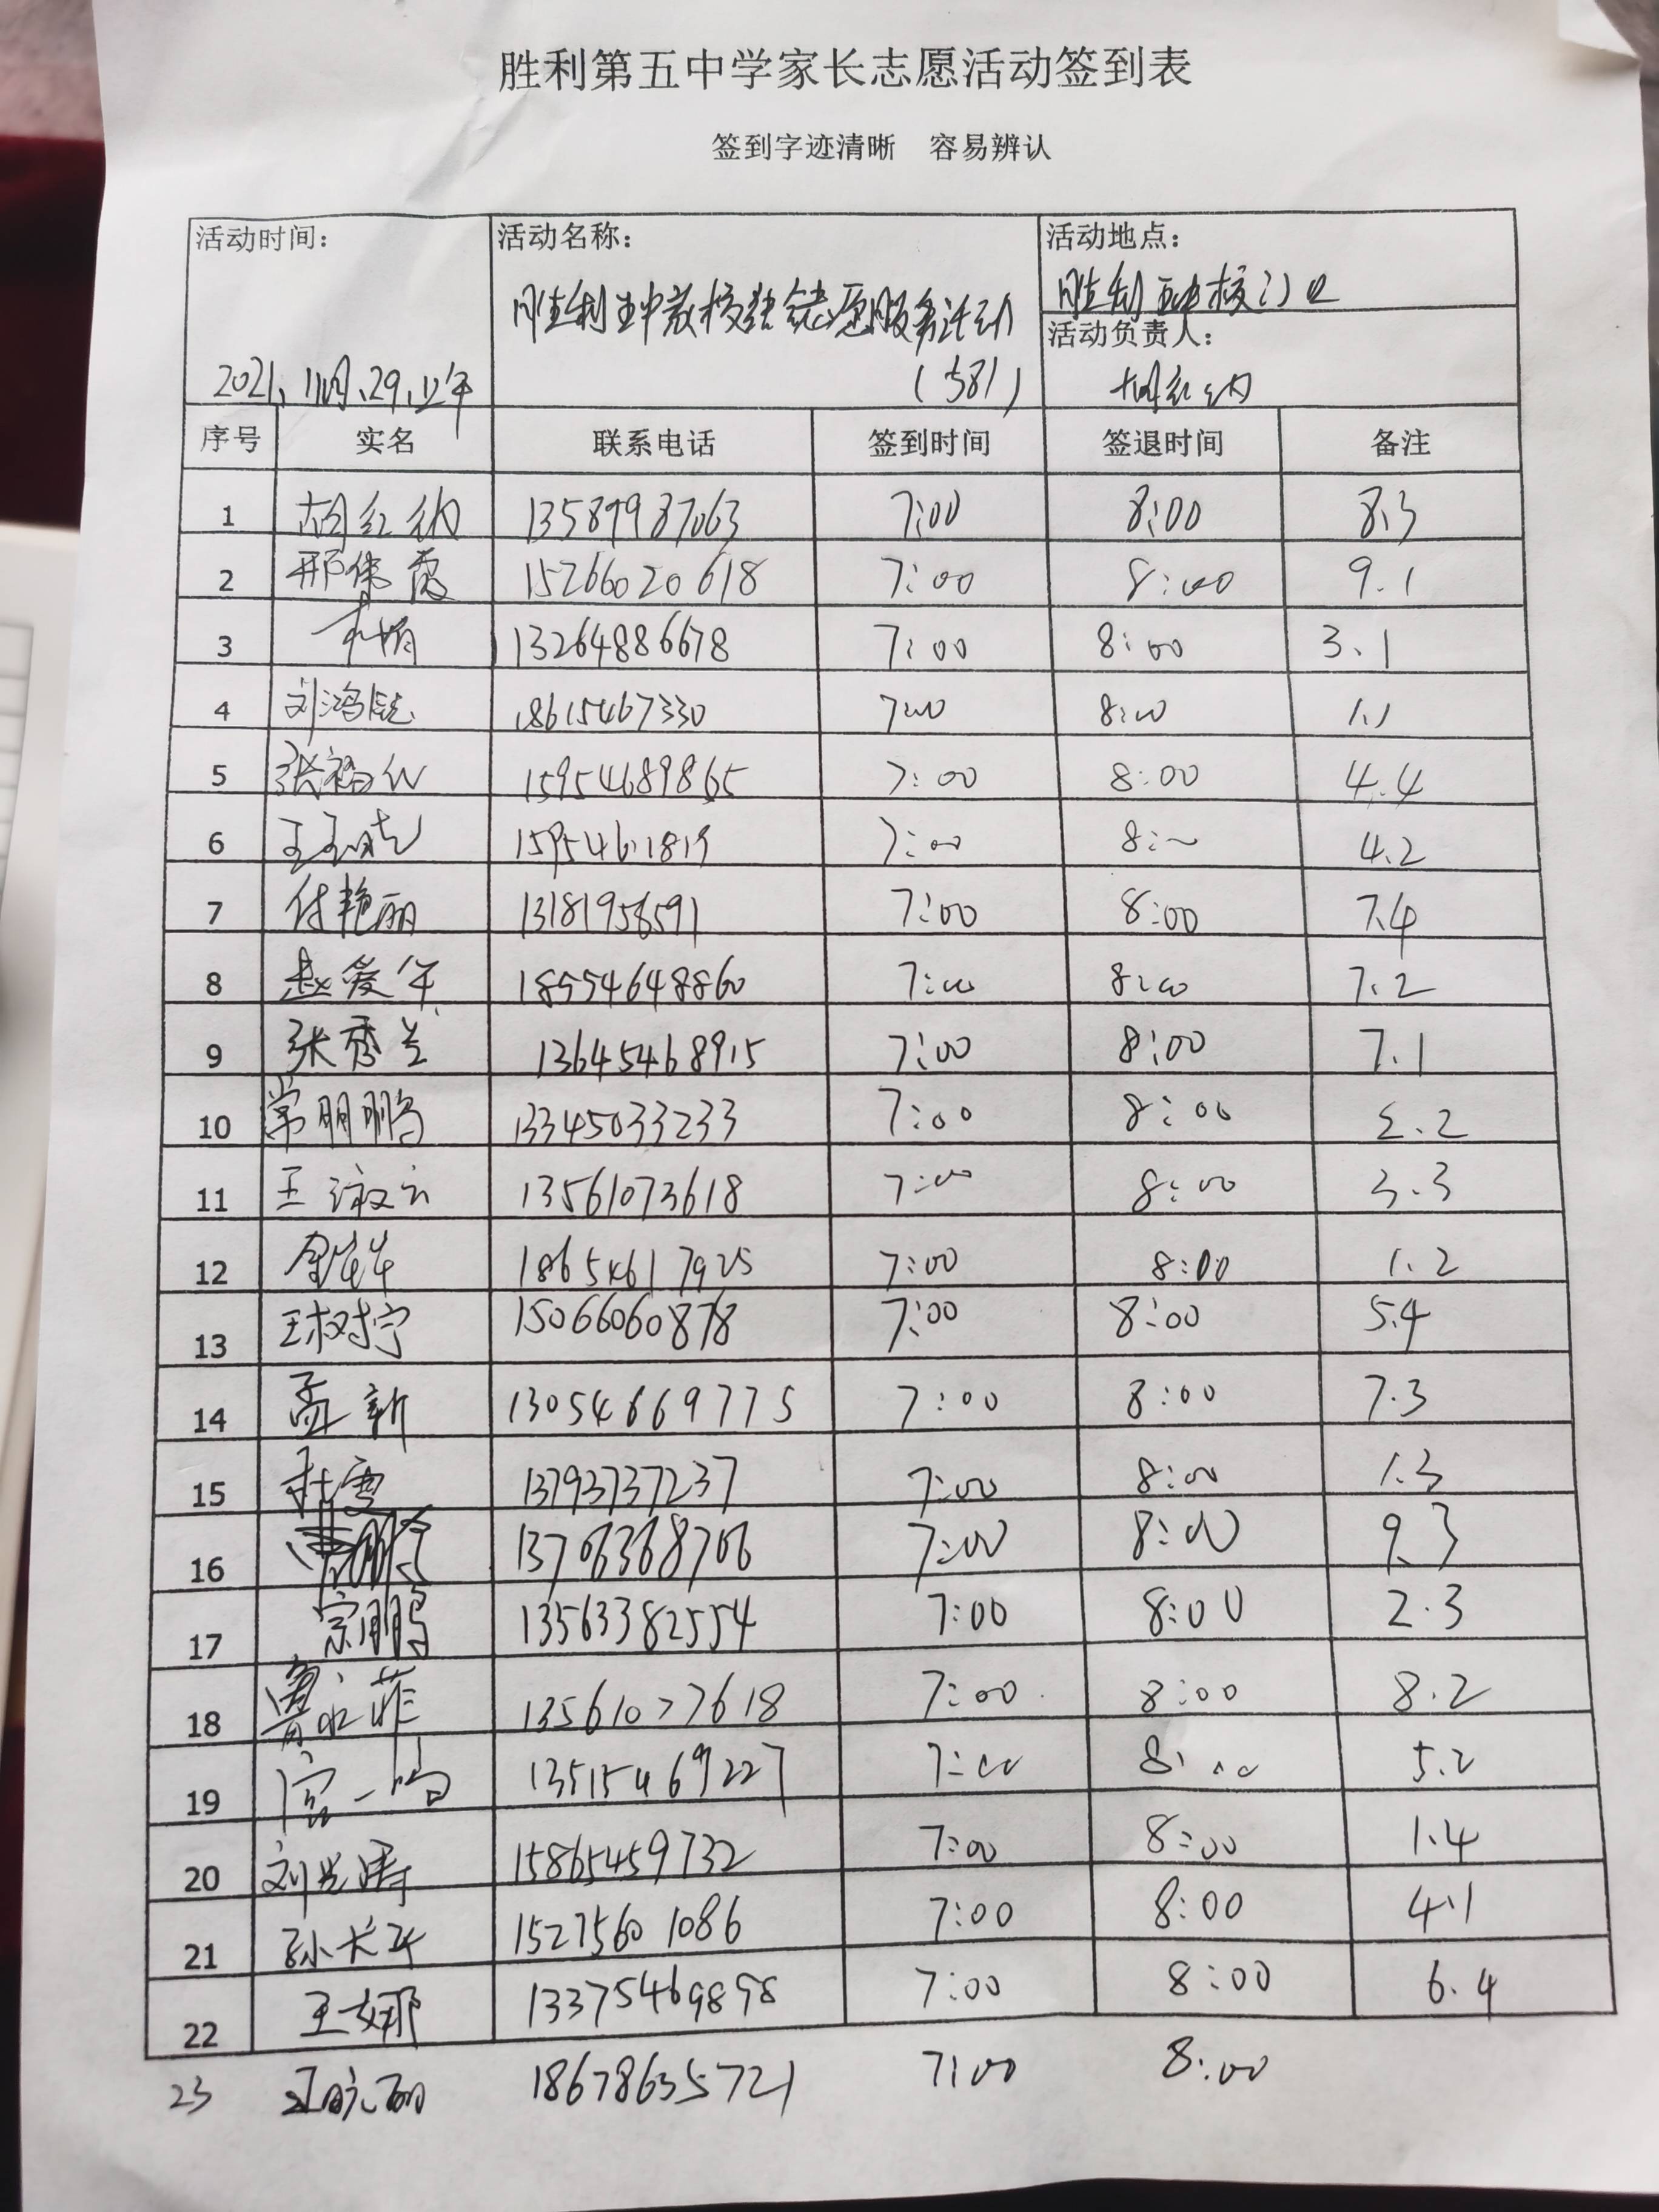 胜利第五中学家长志愿活动签到表
签到字迹清晰 容易辨认
活动时间： 活动名称： 活动地点：
胜利五中校门口
胜利五中 志愿服务活动
活动负责人：
2021、11月、29、上午 (381) 胡红纳
序号 实名 联系电话 签到时间 签退时间 备注
1 胡红纳 13589987063 7:00 8:00 8.3
2 邢 霞 15266020618 7:00 8:00 9.1
3 13264886678 7:00 8:00 3.1
4 刘鸿 18615467330 7:00 8:00 1.1
5 张 15954689865 7:00 8:00 4.4
6 王 7:00 8:00 4.2
7 付艳丽 13181958591 7:00 8:00 7.4
8 赵爱 18554648860 7:00 8:00 7.2
9 张秀兰 13645468915 7:00 8:00 7.1
10 常朋鹏 13345033233 7:00 8:00 2.2
11 王淑云 13561073618 7:00 8:00 3.3
12 18654617925 7:00 8:00 1.2
13 王树宁 15066060878 7:00 8:00 5.4
14 孟新 13054669775 7:00 8:00 7.3
15 杜雪 13793737237 7:00 8:00 1.3
16 13706368706 7:00 8:00 9.3
17 宗鹏 13563382554 7:00 8:00 2.3
18 鲁 菲 13561077618 7:00 8:00 8.2
19 宫一鸣 13515469227 7:00 8:00 5.2
20 刘 涛 15865459732 7:00 8:00 1.4
21 孙长 15275601086 7:00 8:00 4.1
22 王娜 13375469898 7:00 8:00 6.4
23 王 丽 18678635721 7:00 8:00